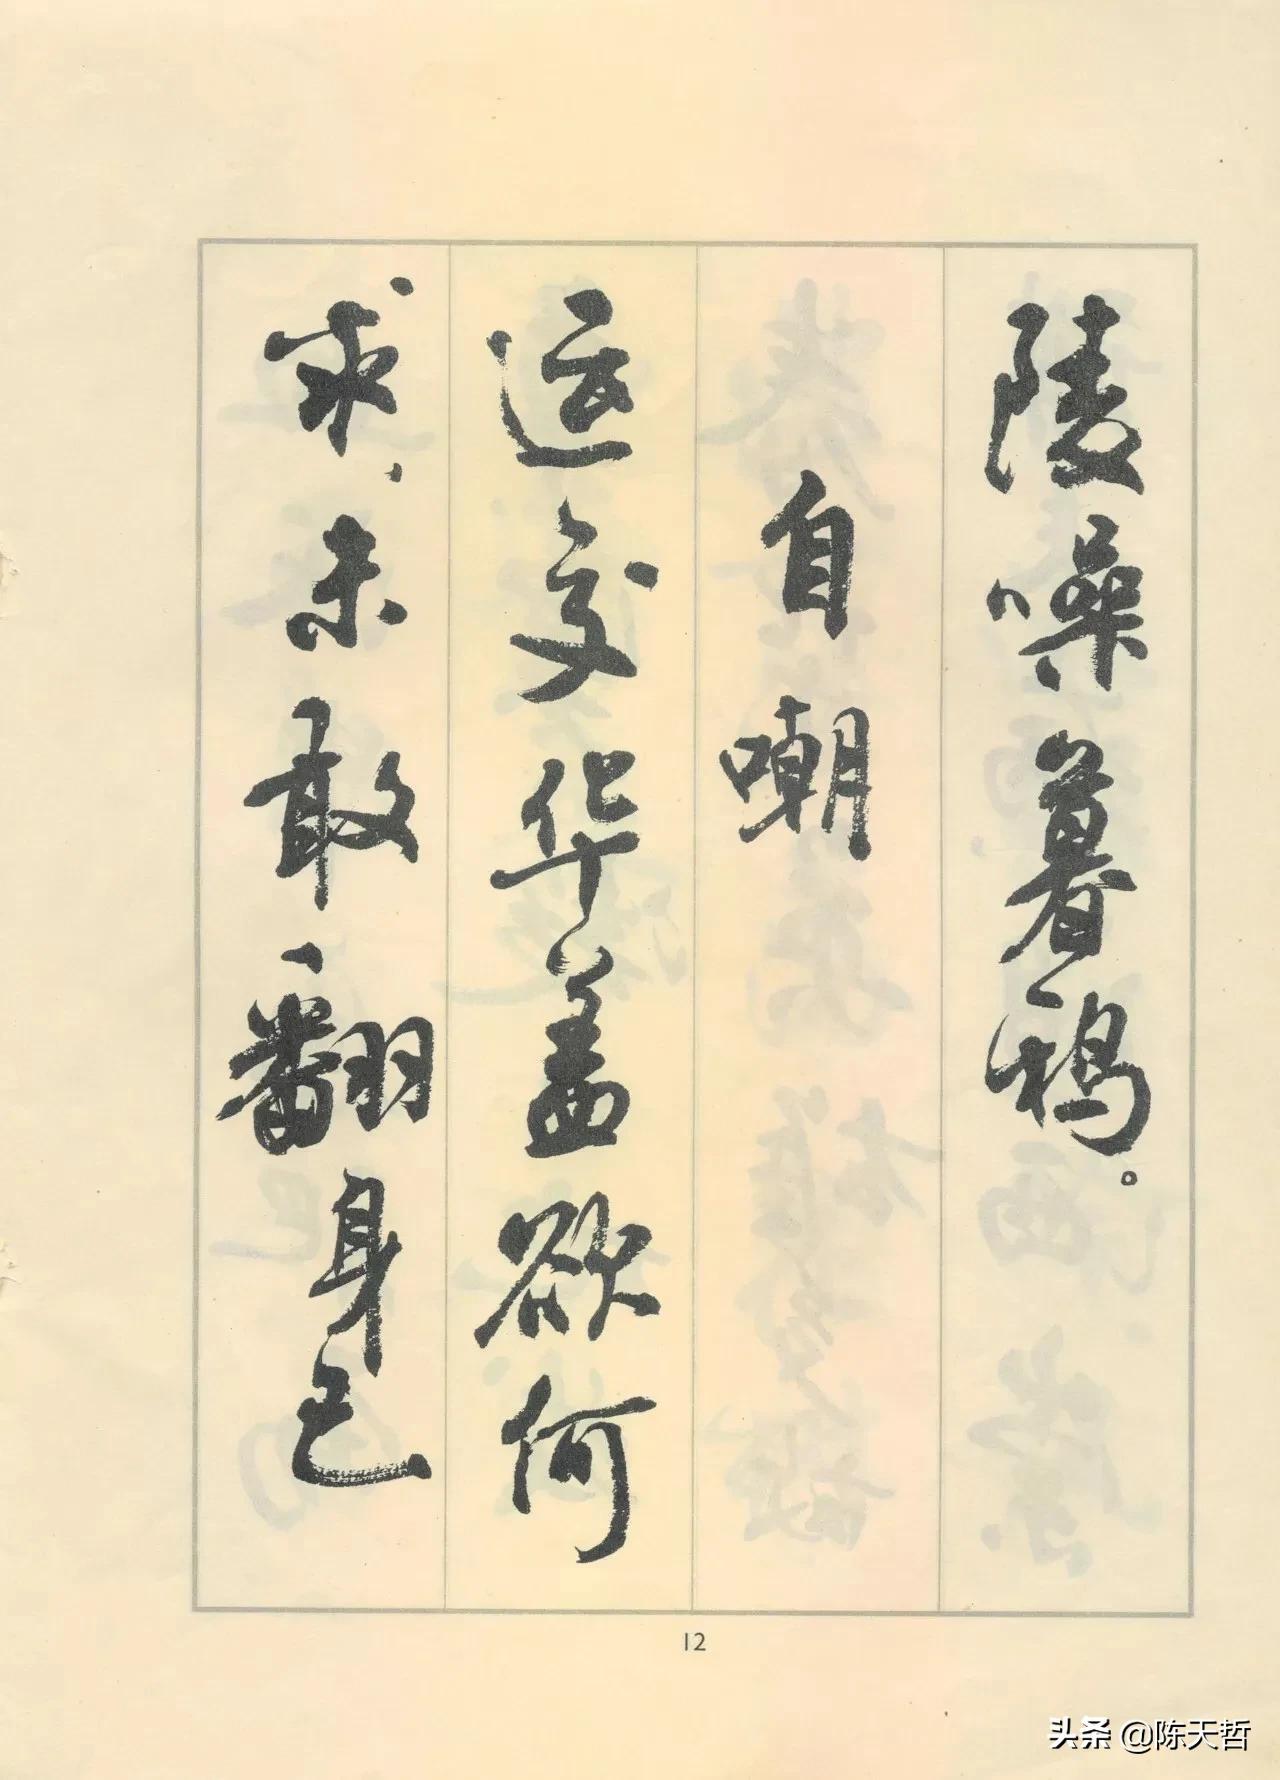 陵噪暮鸦。
自嘲
运交华盖欲何
求，未敢翻身已
12
头条 @陈天哲